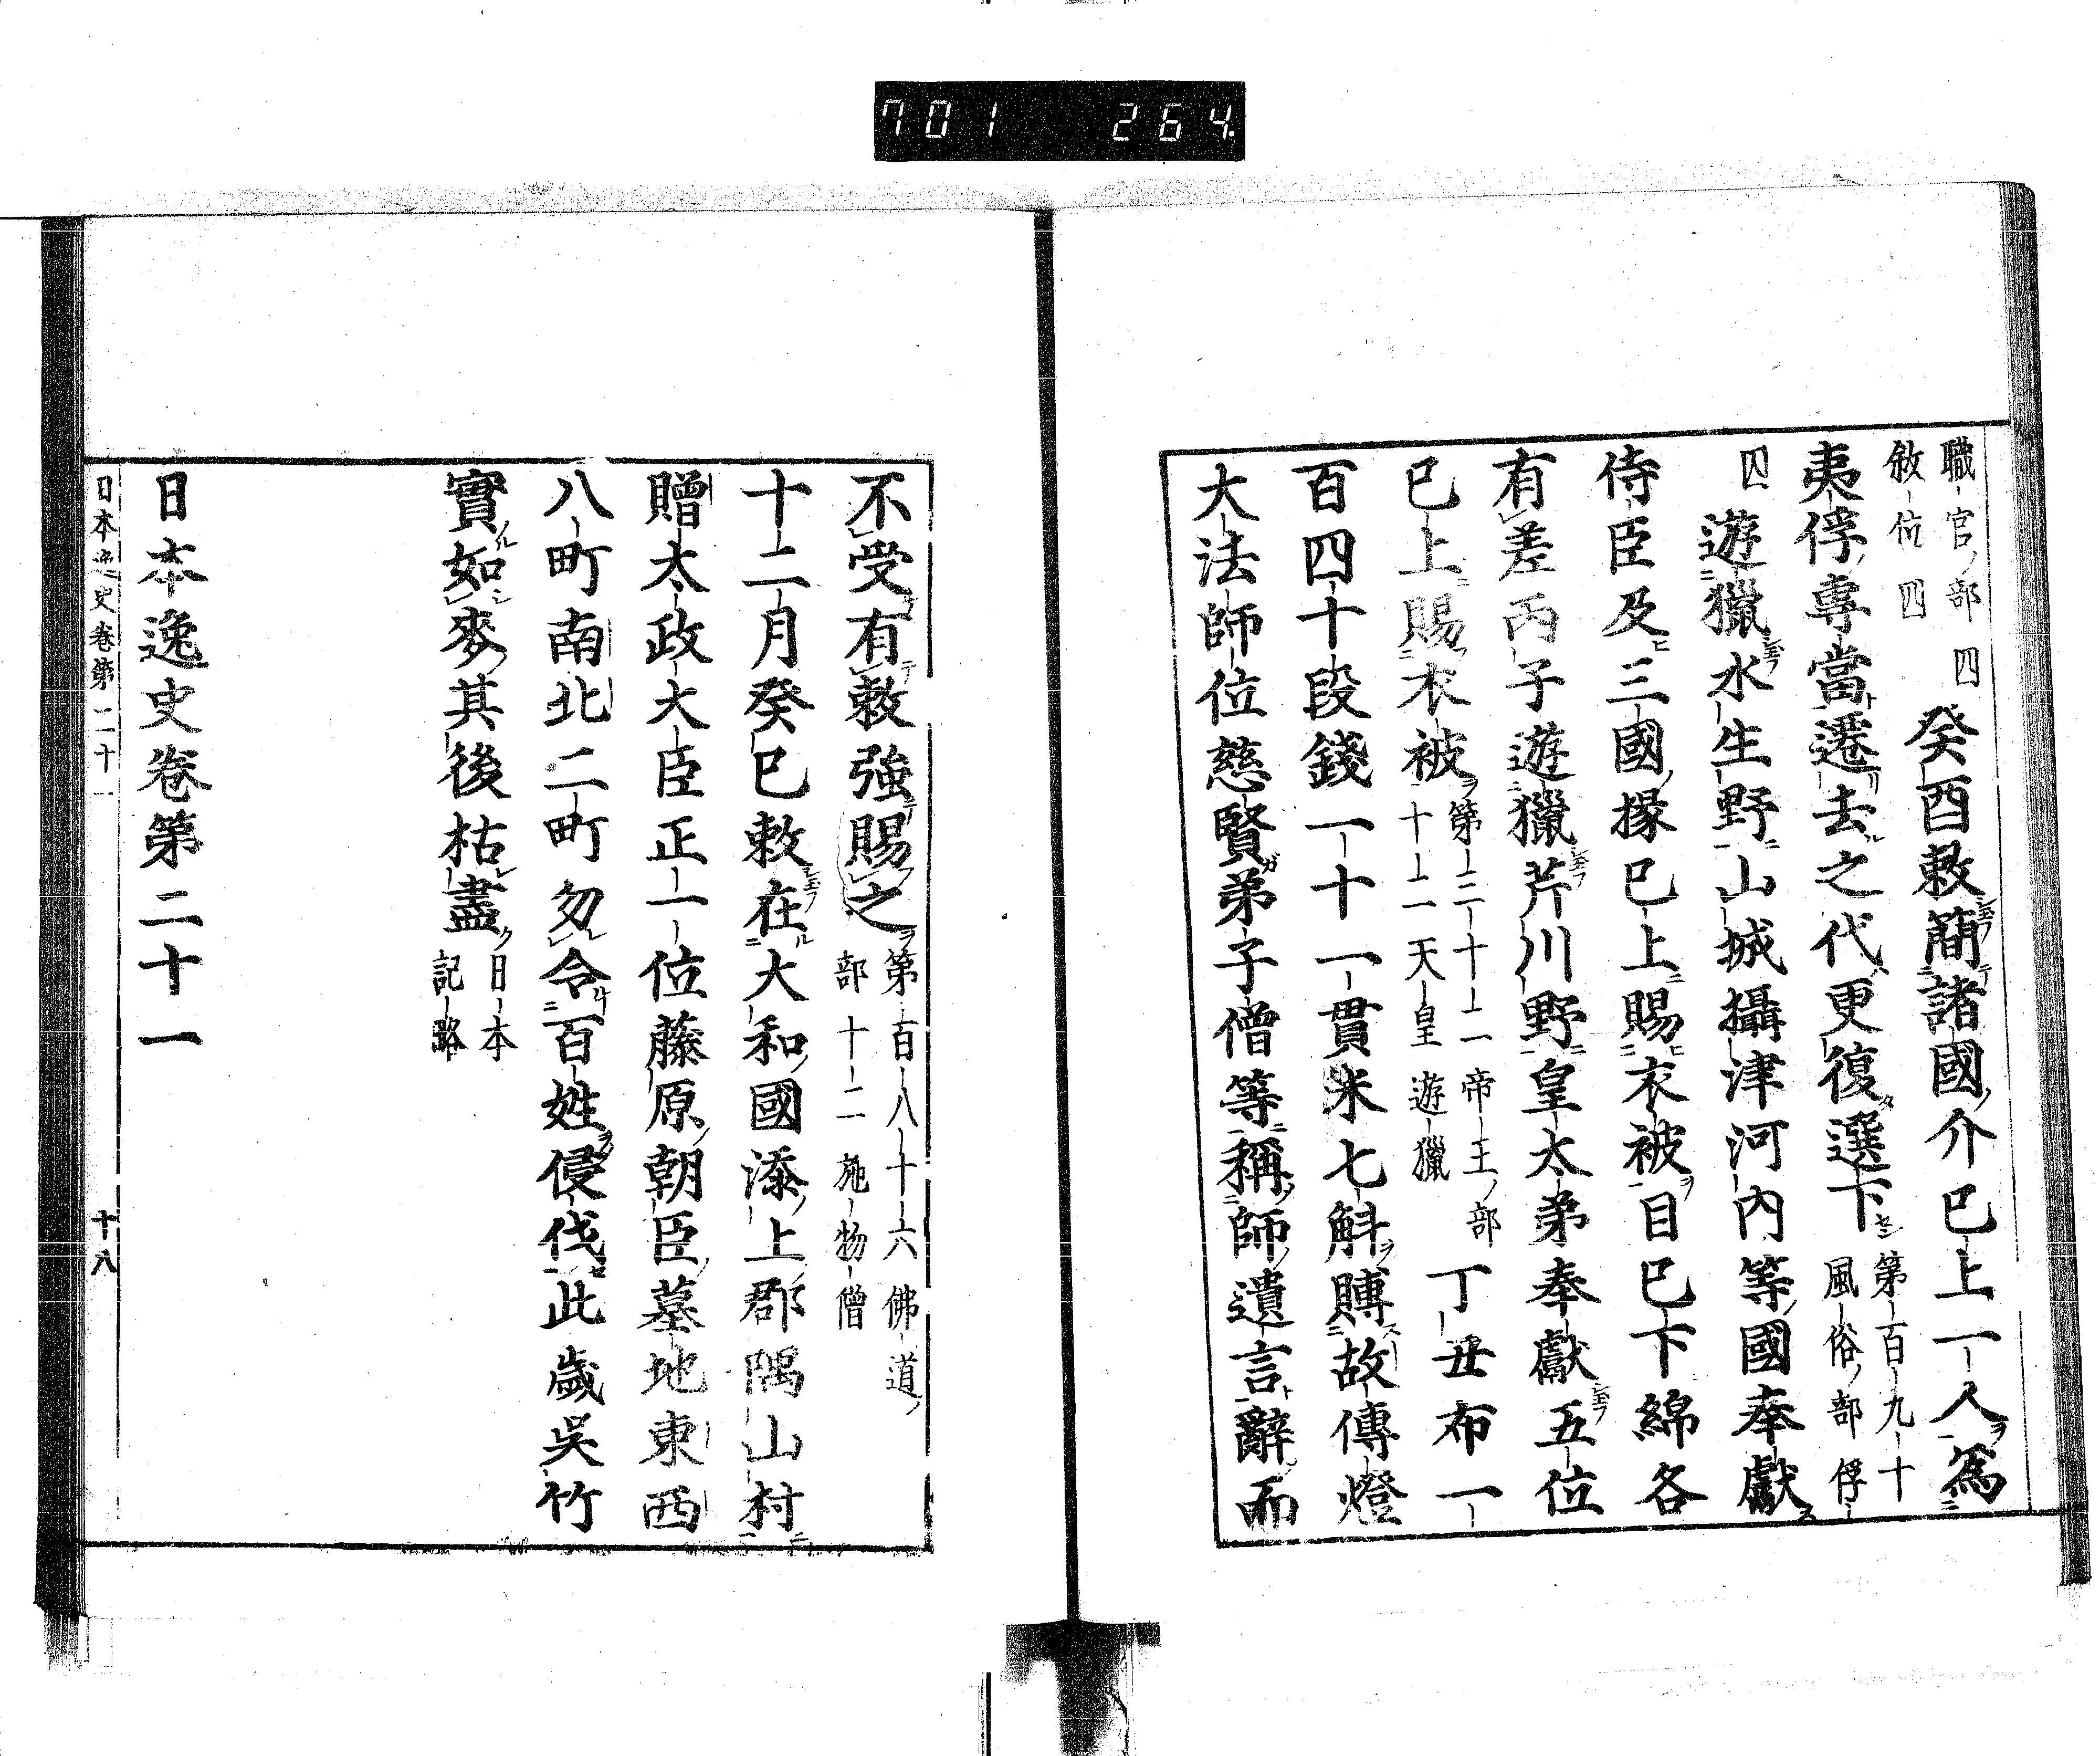 701 264
職官部四
敘位四
癸酉敕簡諸國介已上一人為
夷俘專當遷去之代更復選下
第百九十
風俗部俘
囚
遊獵水生野山城攝津河內等國奉獻
侍臣及三國掾已上賜衣被目已下綿各
有差丙子遊獵芹川野皇太弟奉獻五位
已上賜衣被
第三十二帝王部
十二天皇遊獵
丁丑布一
百四十段錢一十一貫米七斛賻故傳燈
大法師位慈賢弟子僧等稱師遺言辭而
不受有敕強賜之
第百八十六佛道
部十二施物僧
十二月癸巳敕在大和國添上郡隅山村
贈太政大臣正一位藤原朝臣墓地東西
八町南北二町勿令百姓侵伐此歲吳竹
實如麥其後枯盡
日本
記略
日本逸史卷第二十一
日本逸史卷第二十一
十八